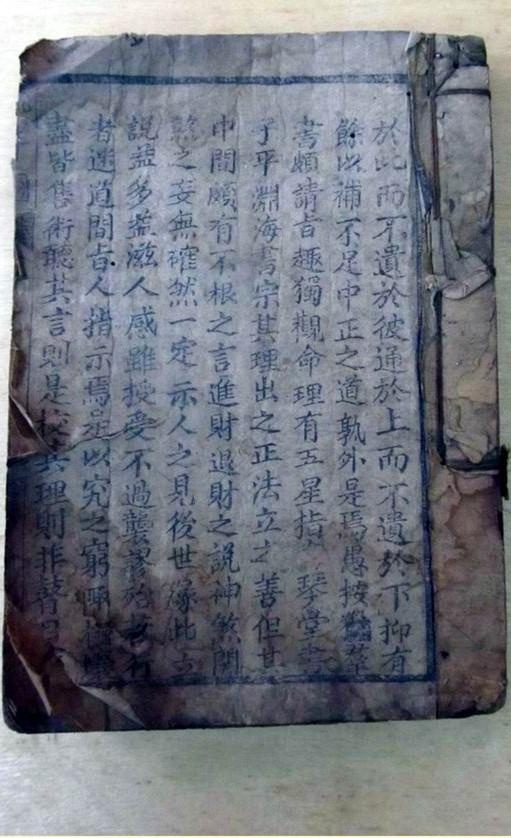 於此而不遺於彼通於上而不遺於下抑有
餘以補不足中正之道孰外是焉愚按羣
書頗請旨趣獨觀命理有五星指 琴堂書
子平淵海書宗其理出之正法立之善但其
中間頗有不根之言進財退財之說神煞關
煞之妄無確然一定示人之見後世緣此立
說益多益滋人感雖授受不過襲謬
者迷道間旨人指示焉足以究之窮
盡皆售術聽其言則是校其理則非